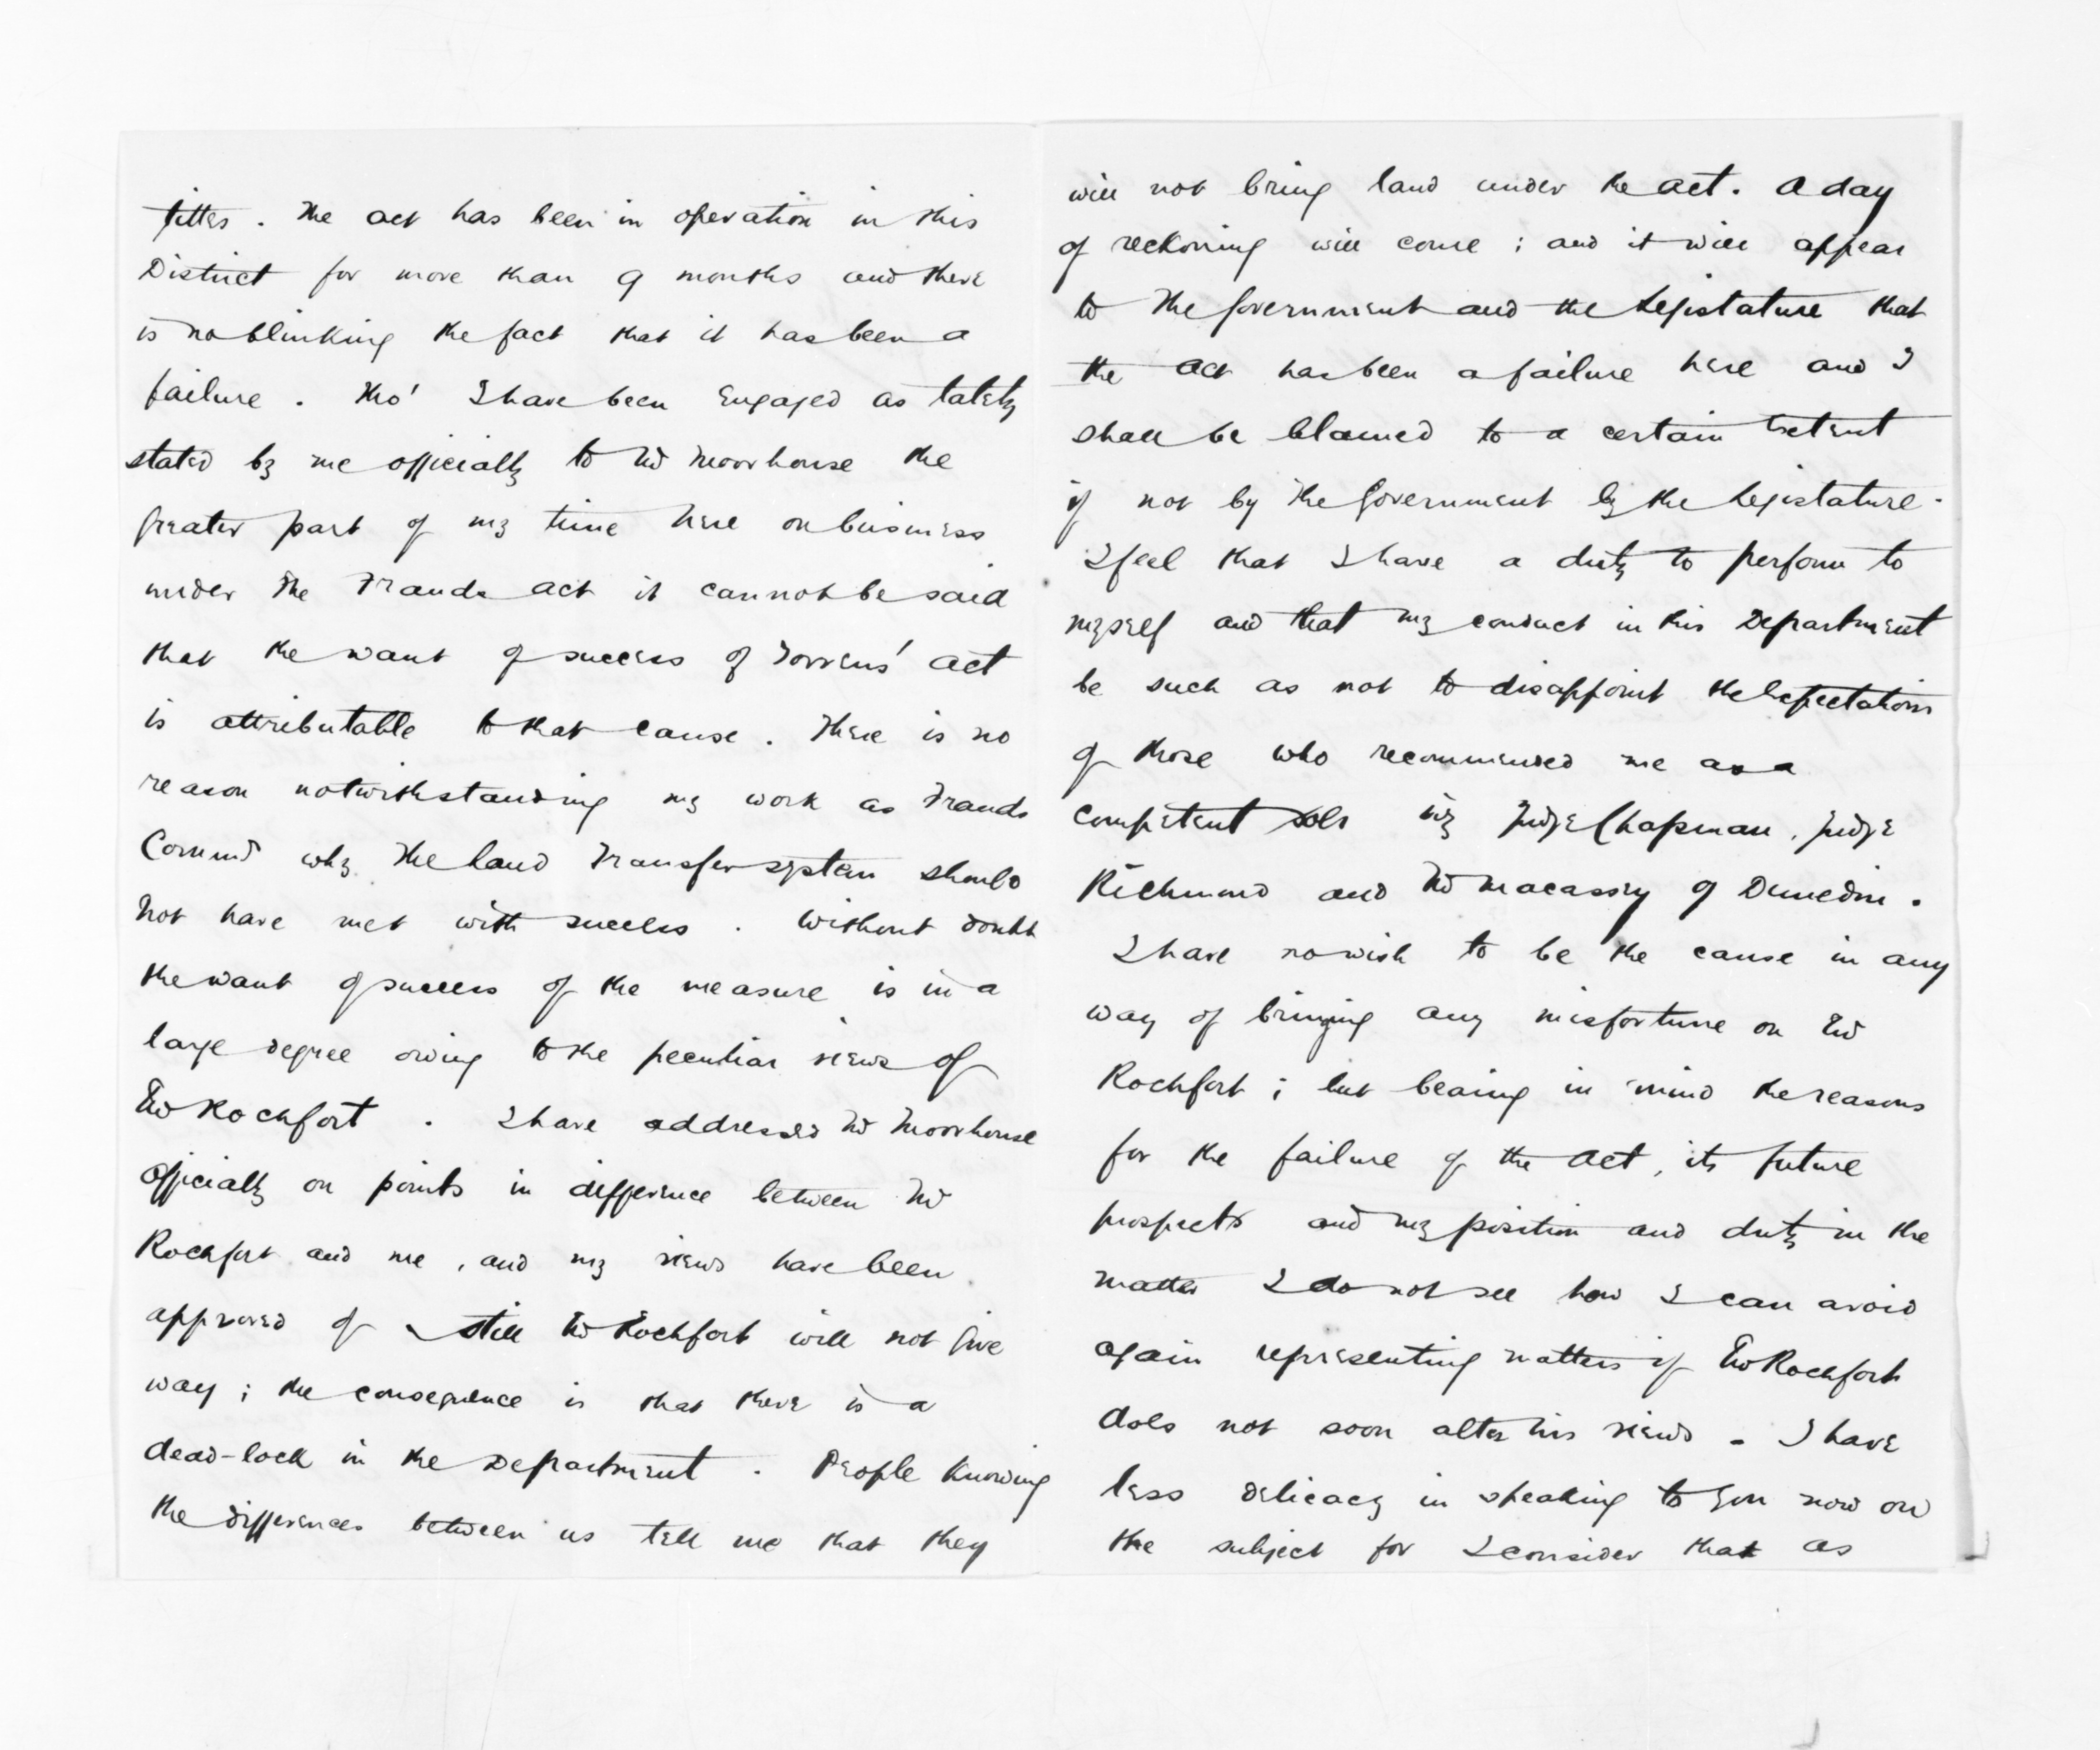 titles. The act has been in operation in this
District for more than 9 months and there
is no blinking the fact that it has been a
failure. Tho' I have been engaged as lately
stated by me officially to Mr Moorhouse the
greater part of my time here on business
under the Frauds Act it cannot be said
that the want of success of Torrens' Act
is attributable to that cause. There is no
reason notwithstanding my work as Frauds
Commr why the Land Transfer system should
not have met with success. Without doubt
the want of success of the measure is in a
large degree owing to the peculiar views of
Mr Rochfort. I have addressed Mr Moorhouse
officially on points in difference between Mr
Rochfort and me, and my views have been
approved of still Mr Rochfort will not give
way; the consequence is that there is a
dead-lock in the Department. People knowing
the differences between us tell me that they
will not bring land under the act. A day
of reckoning will come; and it will appear
to the Government and the Legislature that
the act has been a failure here and I
shall be blamed to a certain extent
if not by the Government by the Legislature.
I feel that I have a duty to perform to
myself and that my conduct in this Department
be such as not to disappoint the expectations
of those who recommended me as a
competent Solr viz Judge Chapman, Judge
Richmond and Mr Macassey of Dunedin.
I have no wish to be the cause in any
way of bringing any misfortune on Mr
Rochfort; but bearing in mind the reasons
for the failure of the Act, its future
prospects and my position and duty in the
matter I do not see how I can avoid
again representing matters if Mr Rochfort
does not soon alter his views. I have
less delicacy in speaking to you now on
the subject for I consider that as